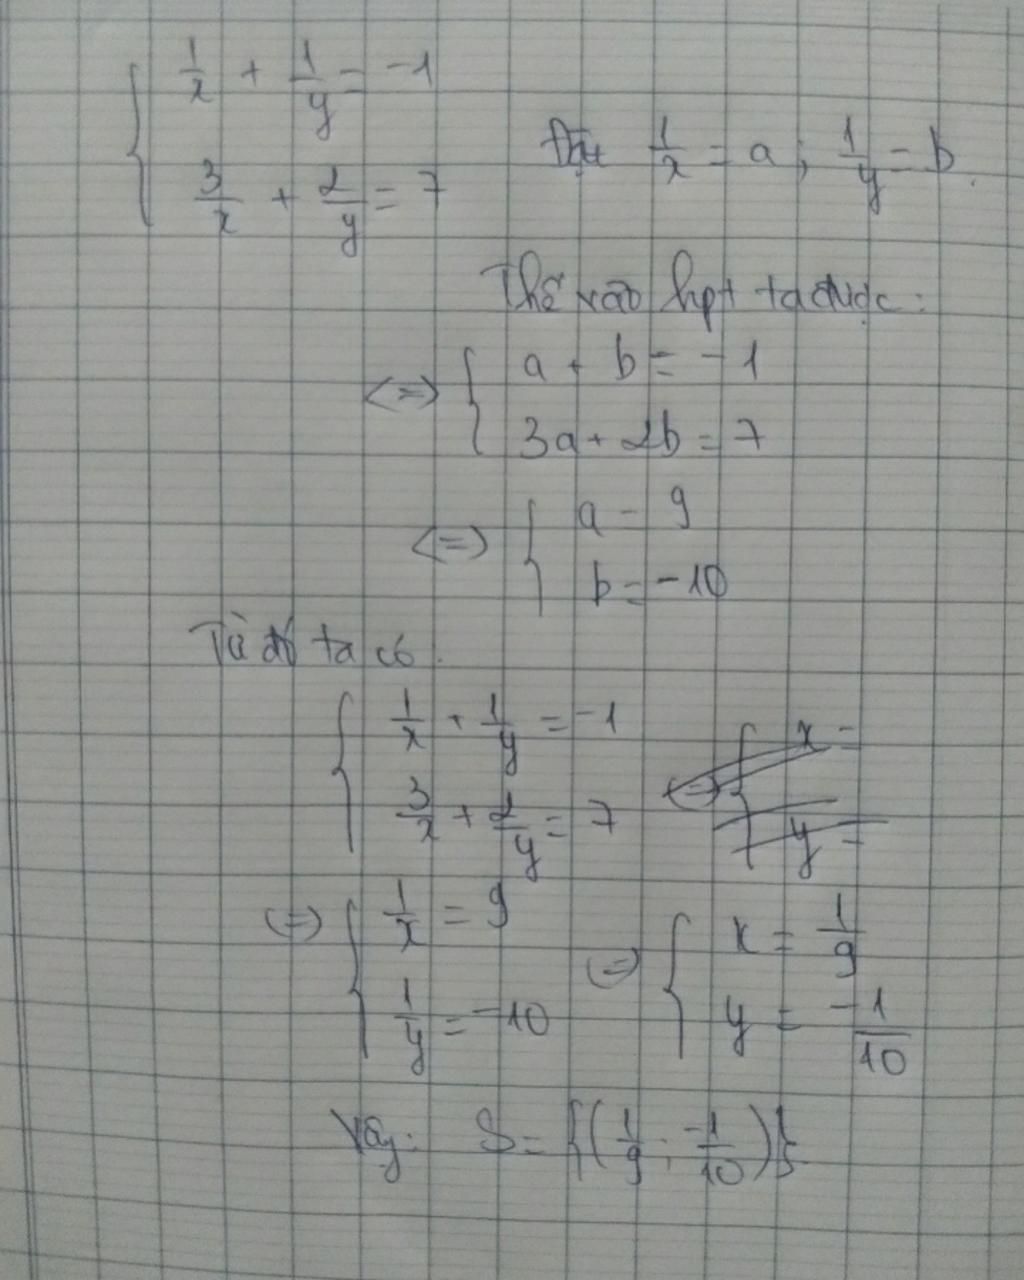 1/x + 1/y = -1
Đặt 1/x = a ; 1/y = b.
3/x + 2/y = 7
Thế vào hpt ta được:
<=> { a + b = -1
3a + 2b = 7
<=> { a = 9
b = -10
Từ đó ta có.
{ 1/x + 1/y = -1
3/x + 2/y = 7
<=> { x =
y =
<=> { 1/x = 9
1/y = -10
<=> { x = 1/9
y = -1/10
Vậy: S = {(1/9 ; -1/10)}